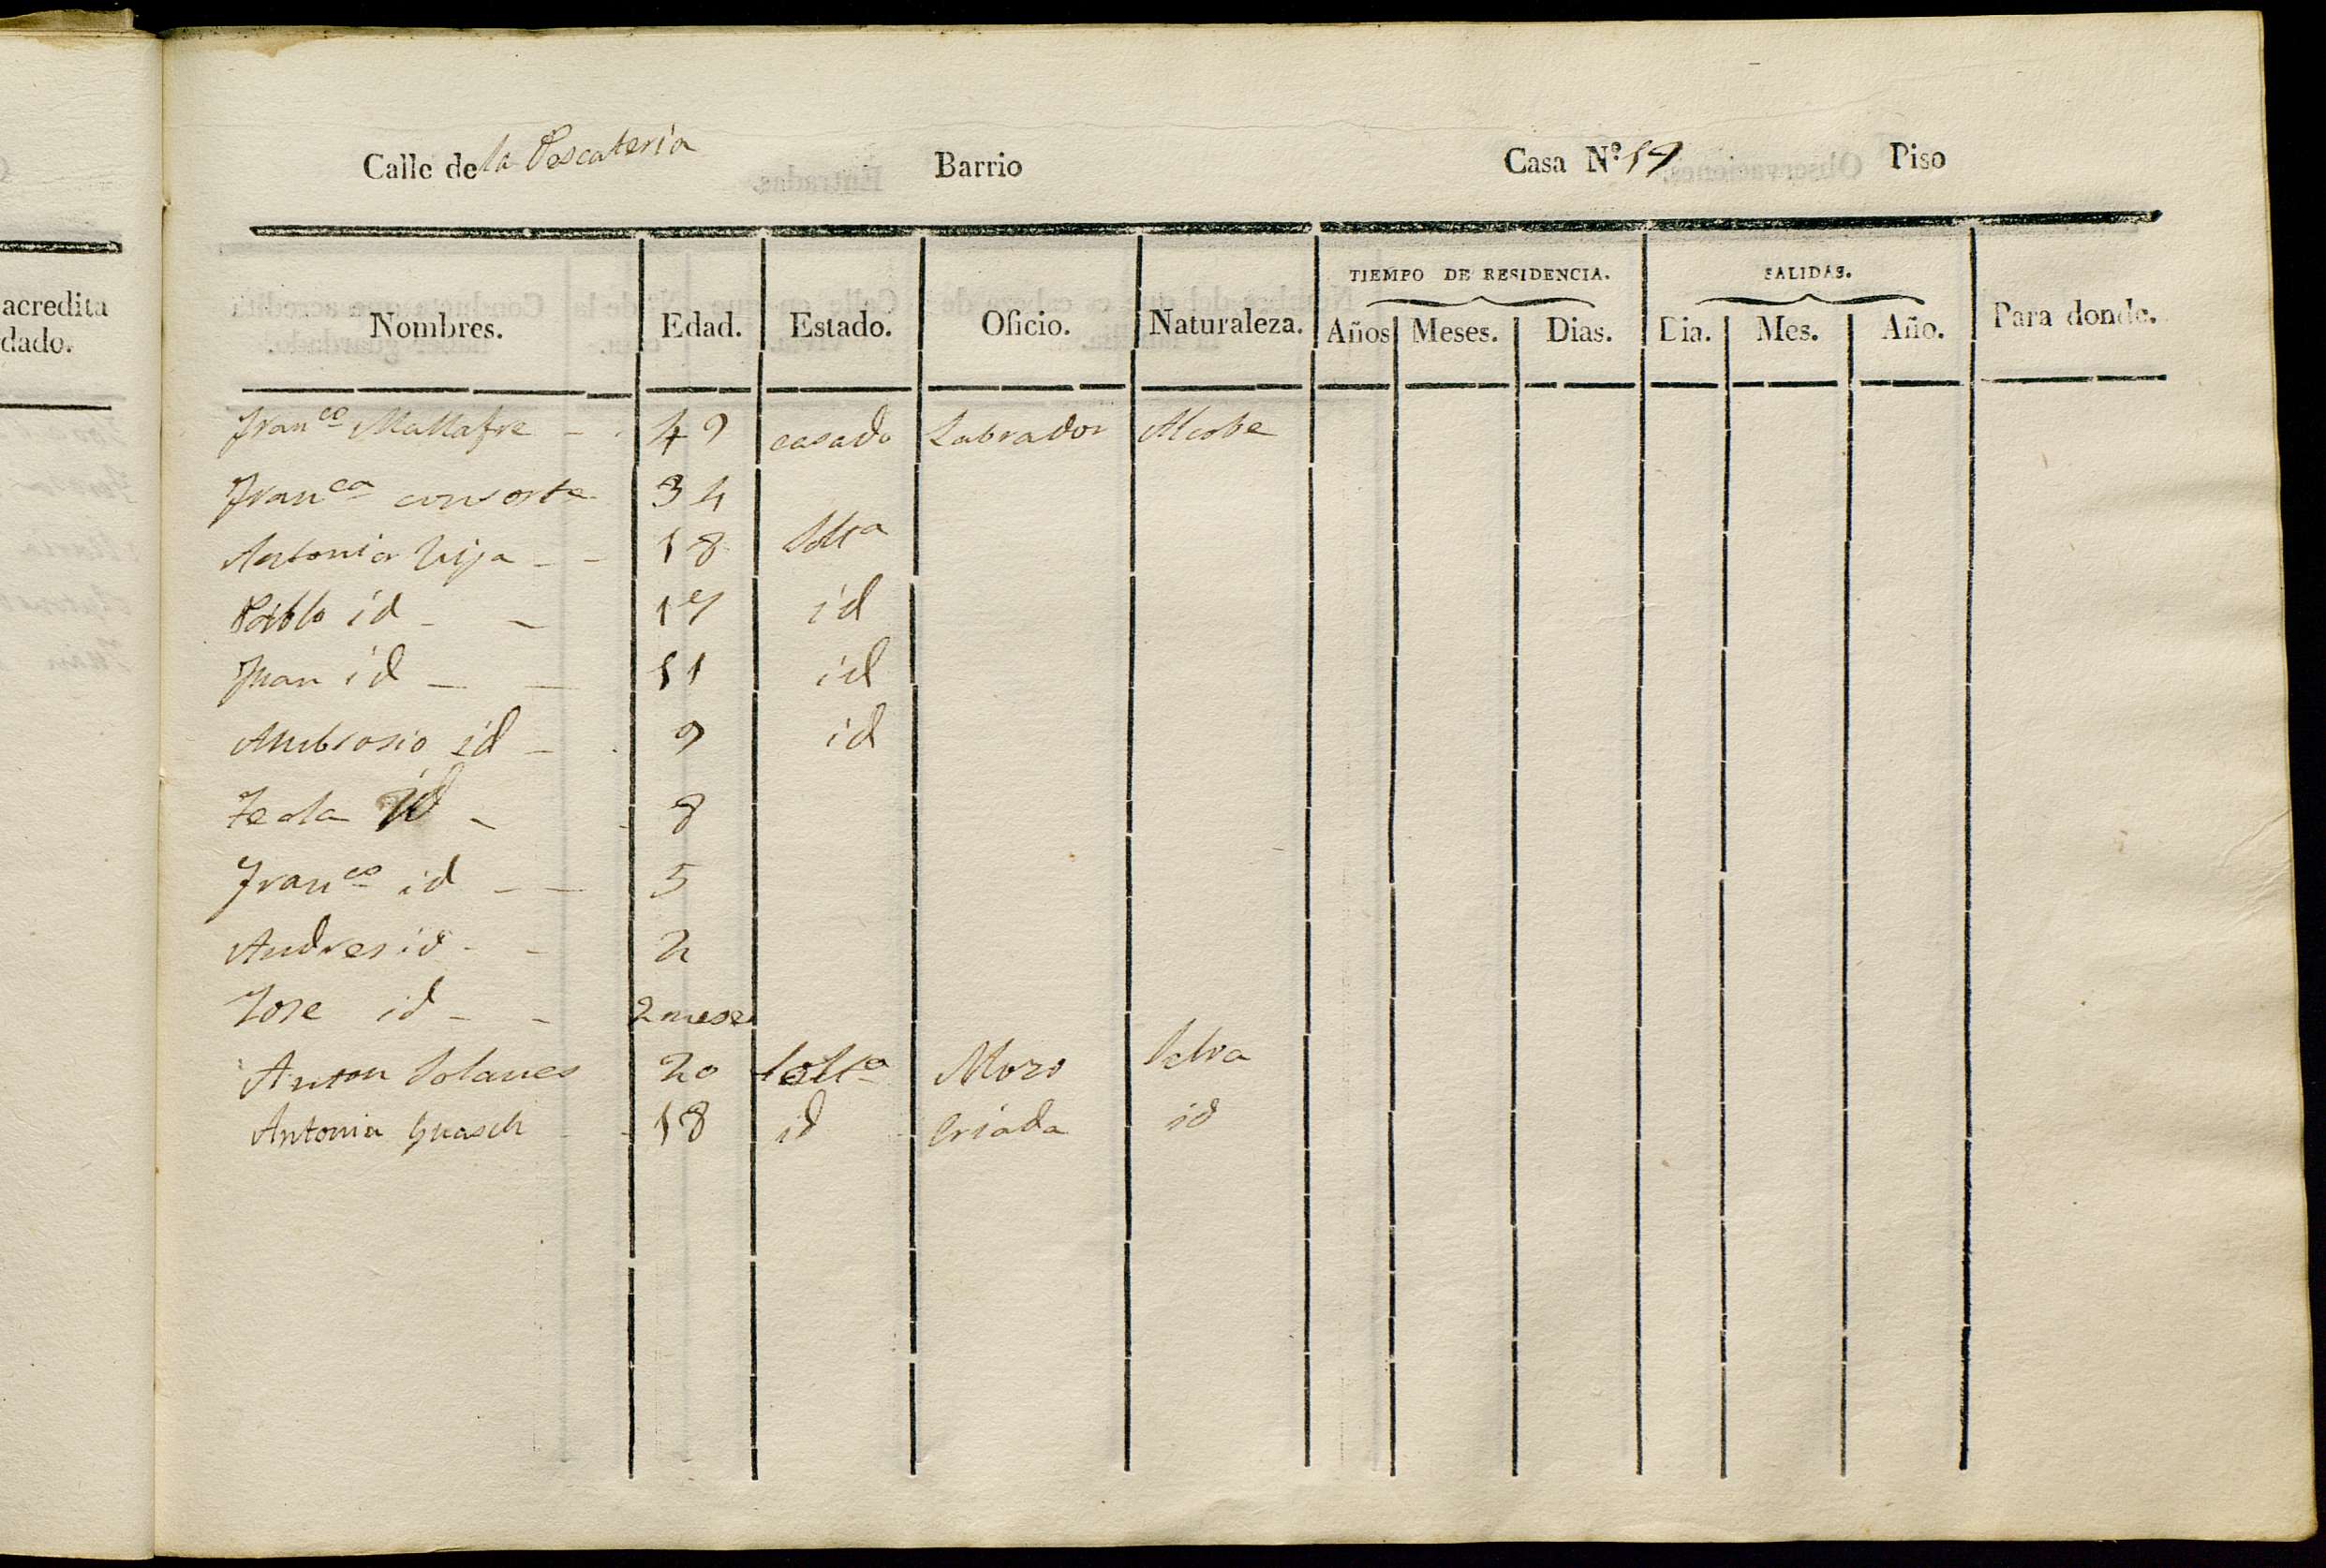 acredita
dado.
Calle de la Pescateria Barrio Casa Nº 19 Piso
TIEMPO DE RESIDENCIA. SALIDAS.
Nombres. Edad. Estado. Oficio. Naturaleza. Años Meses. Dias. Dia. Mes. Año. Para donde.
Franco Mallafre 49 casado Labrador
Franca consorte 34
Antonia hija 18 Solta
Pablo id 17 id
Juan id 11 id
Ambrosio id 9 id
Tecla id 8
Franco id 5
Andres id 2
Jose id 2 meses
Anton Solanes 20 Solto Mozo Selva
Antonia Guasch 18 id criada id